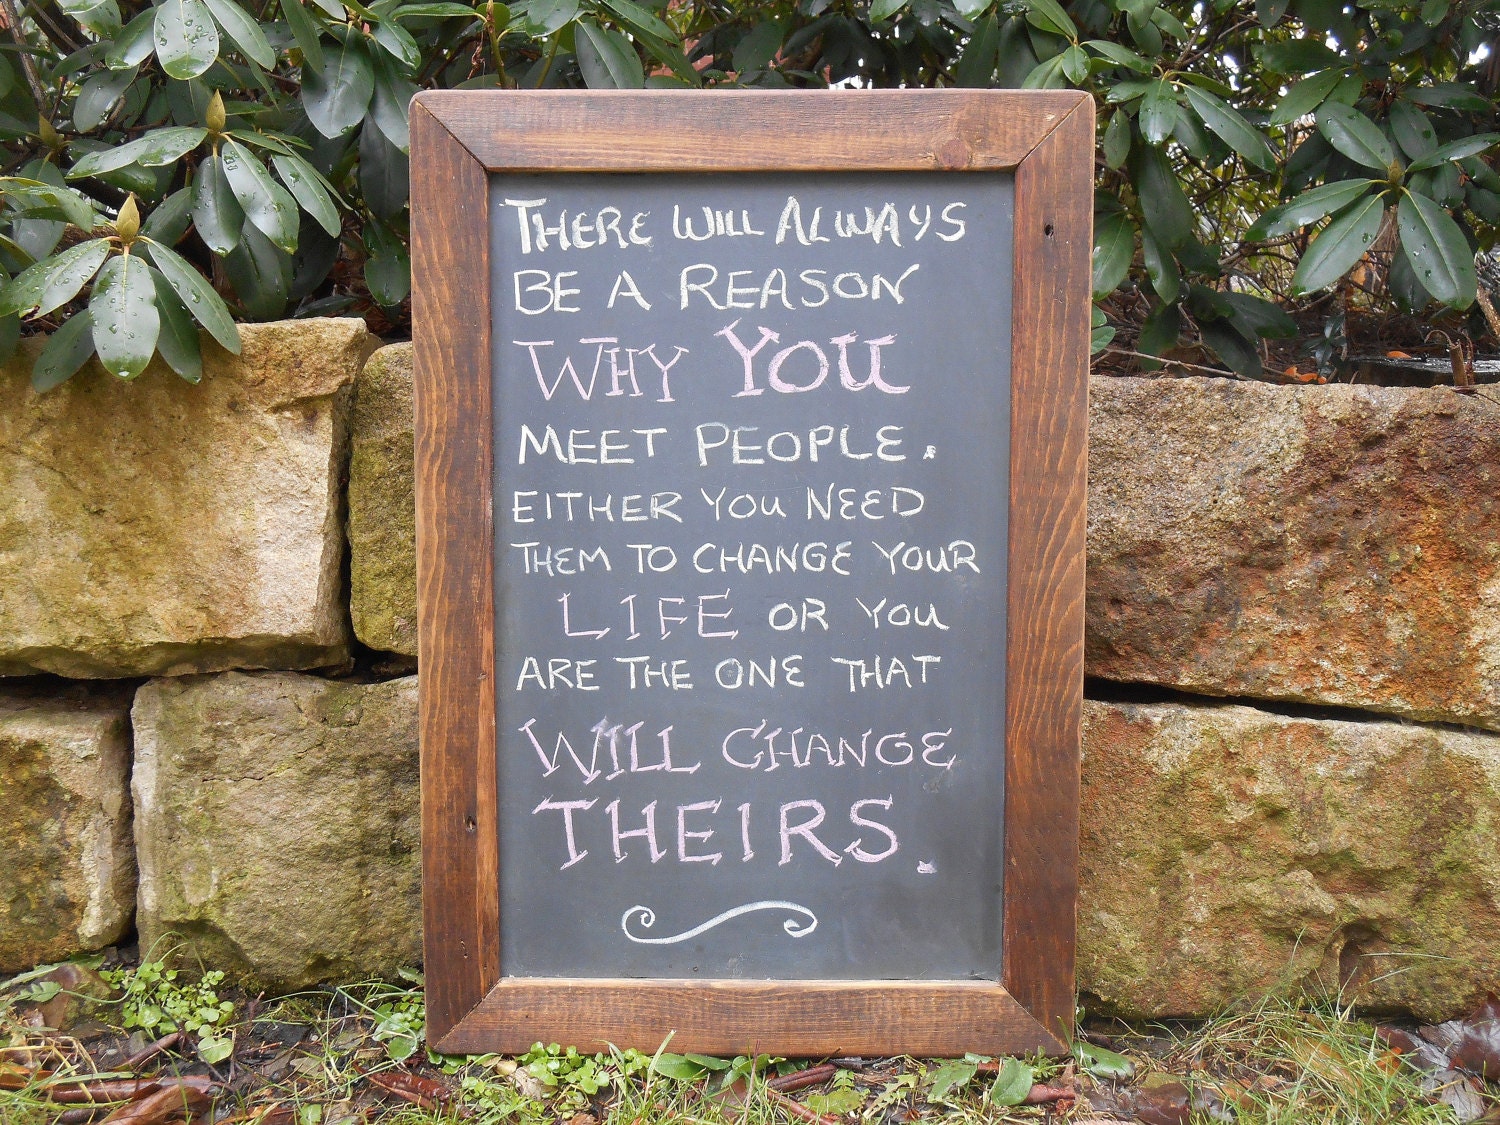 THERE WILL ALWAYS
BE A REASON
WHY YOU
MEET PEOPLE.
EITHER YOU NEED
THEM TO CHANGE YOUR
LIFE OR YOU
ARE THE ONE THAT
WILL CHANGE
THEIRS.